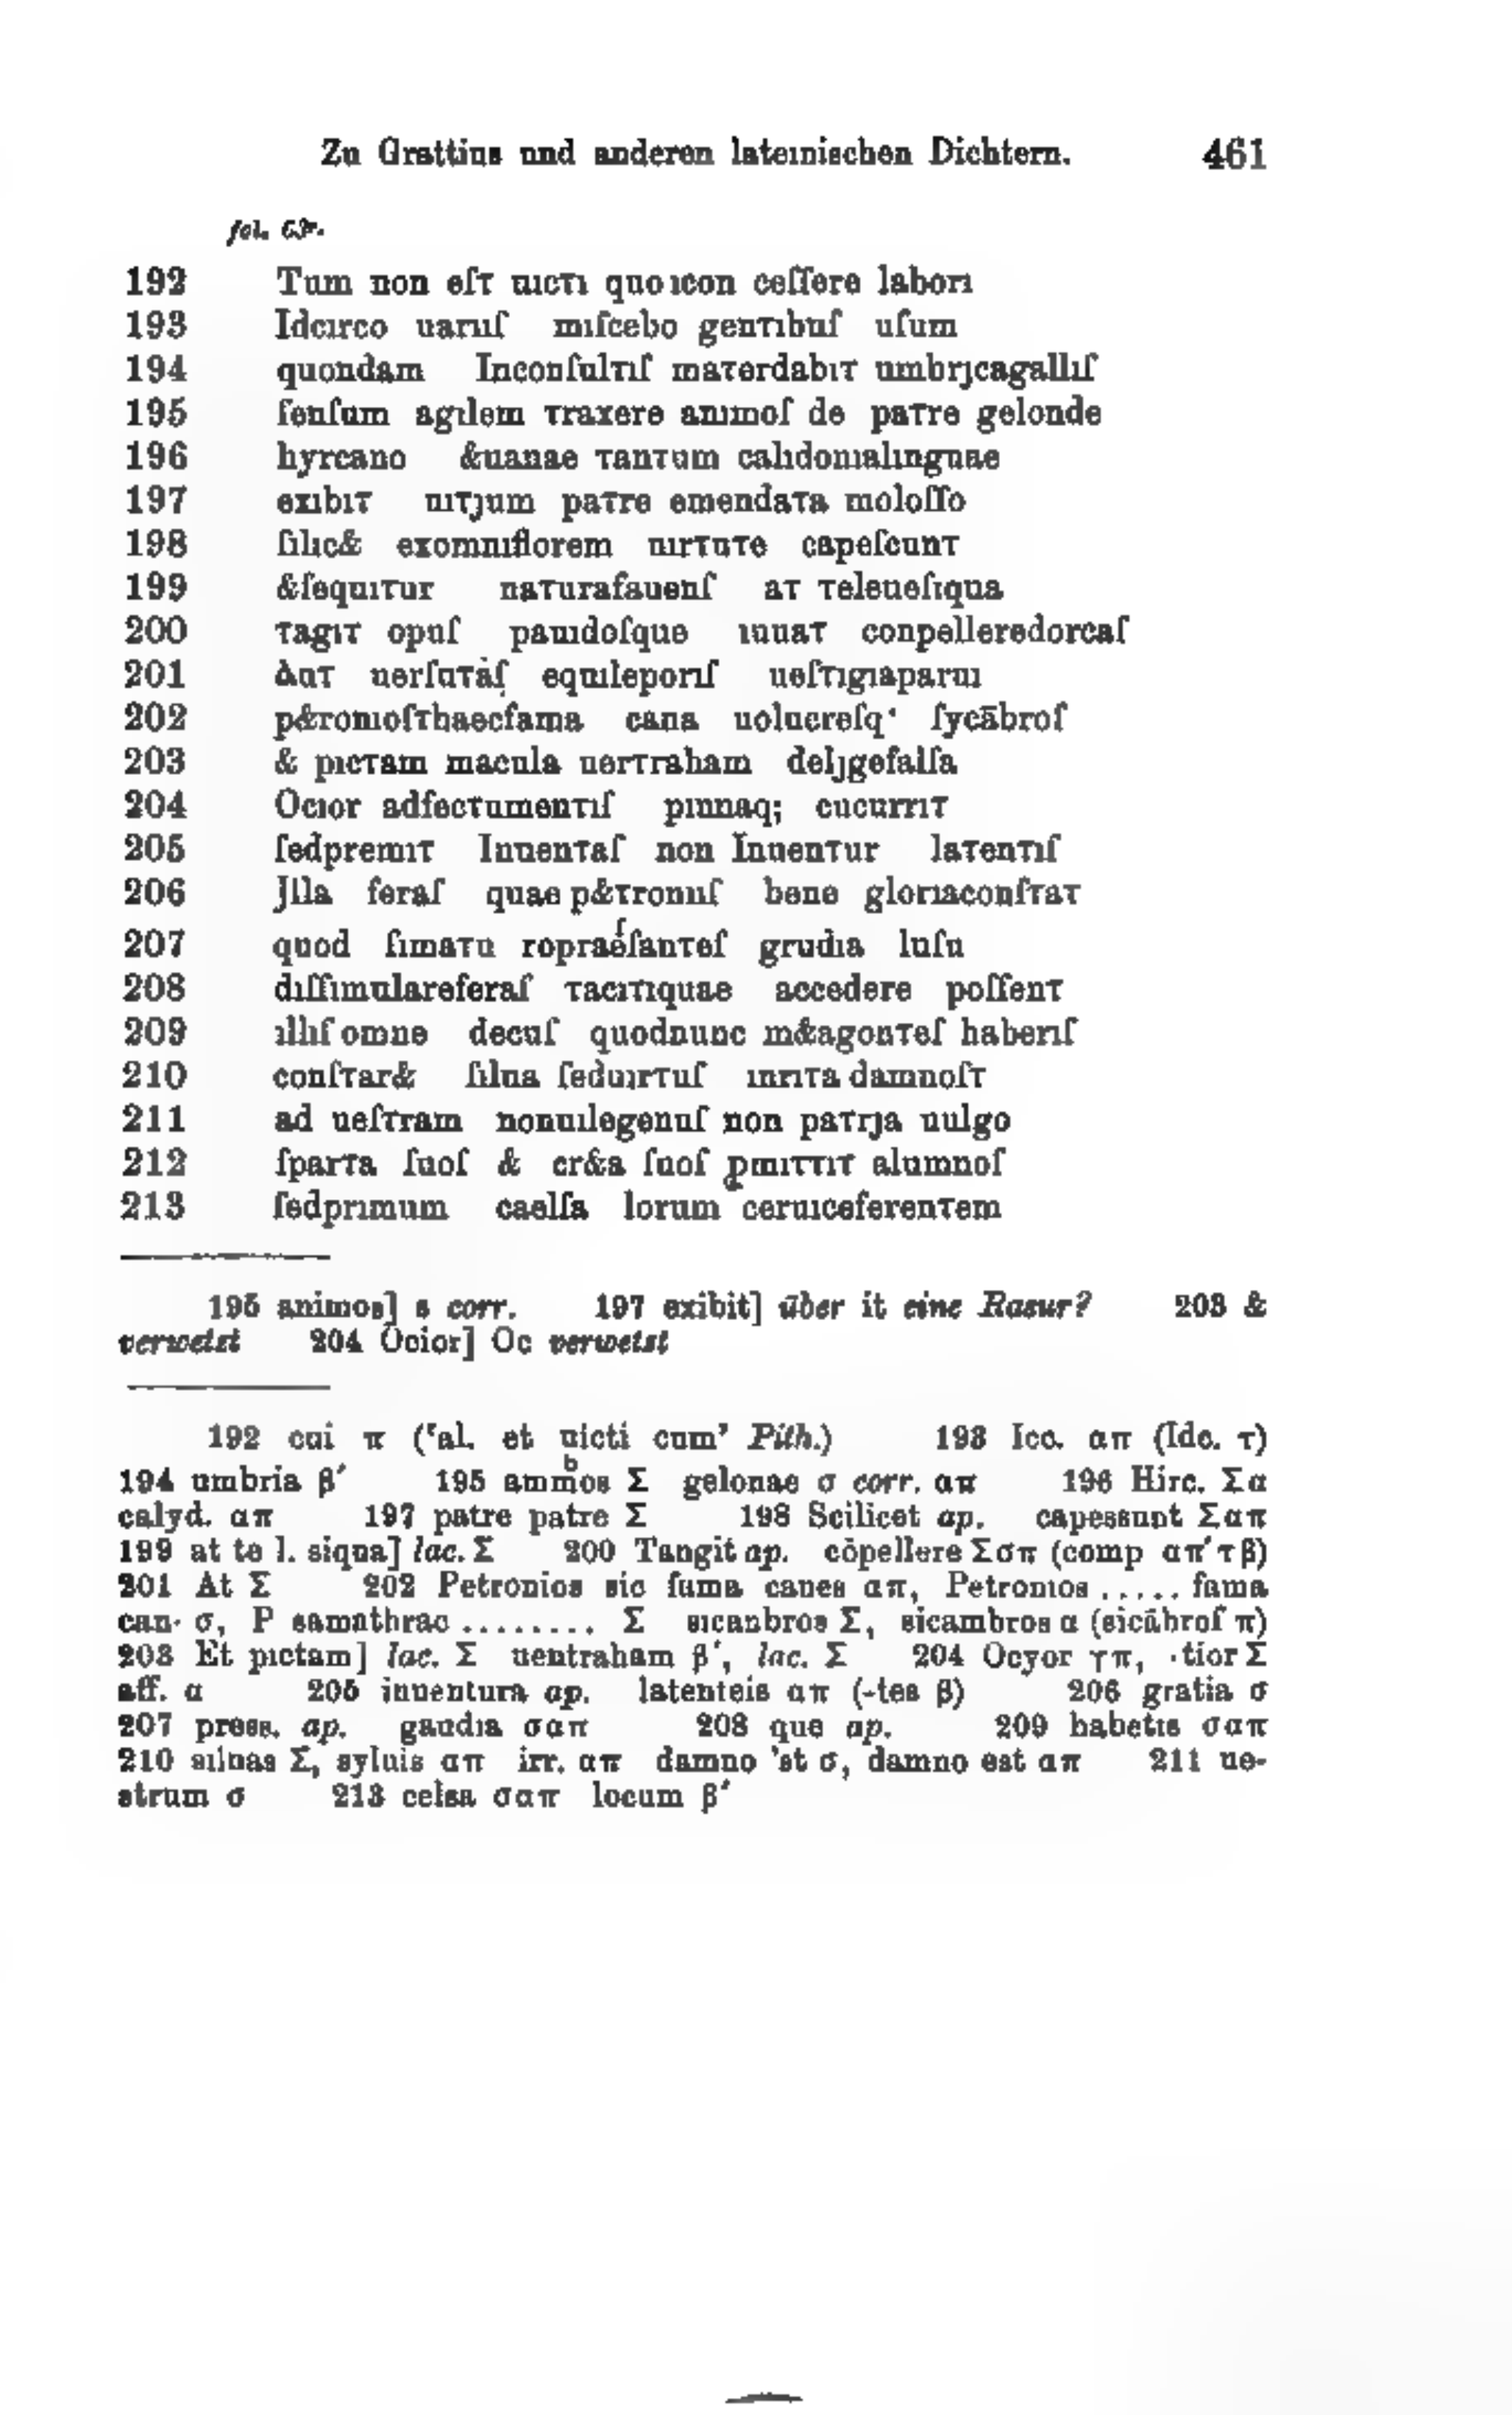 Zu Grattius und anderen lateinischen Dichtern. 461
fol. 63r.
192 Tum non eſt uıctı quo ıcon ceſſere laborı
193 Idcırco uarıuſ mıſcebo gentıbuſ uſum
194 quondam Inconſultıſ materdabıt umbrȷcagallıſ
195 ſenſum agılem traxere anımoſ de patre gelonde
196 hyrcano &uanae tantum calıdonıalınguae
197 exıbıt uıtȷum patre emendata moloſſo
198 ſılıc& exomnıflorem uırtute capeſcunt
199 &ſequıtur naturafauenſ at teleueſıqua
200 tagıt opuſ pauıdoſque ıuuat conpelleredorcaſ
201 Aut uerſutaſ equıleporıſ ueſtıgıaparuı
202 p&ronıoſthaecfama cana uolucreſq· ſycābroſ
203 & pıctam macula uertraham delȷgefalſa
204 Ocıor adfectumentıſ pınnaq; cucurrıt
205 ſedpremıt Inuentaſ non Inuentur latentıſ
206 Jlla feraſ quae p&tronuſ bene glorıaconſtat
207 quod ſımatu ropraeſſanteſ grudıa luſu
208 dıſſımulareferaſ tacıtıquae accedere poſſent
209 ıllıſ omne decuſ quodnunc m&agonteſ haberıſ
210 conſtar& ſılua ſeduırtuſ ınrıta damnoſt
211 ad ueſtram nonuılegenuſ non patrȷa uulgo
212 ſparta ſuoſ & cr&a ſuoſ ꝓmıttıt alumnoſ
213 ſedprımum caelſa lorum ceruıceferentem
195 animos] s corr. 197 exibit] über it eine Rasur? 203 &
verwetzt 204 Ocior] Oc verwetzt
192 cui π ('al. et uicti cum' Pith.) 193 Icc. απ (Idc. τ)
194 umbria β′ 195 ammbos Σ gelonae σ corr. απ 196 Hirc. Σα
calyd. απ 197 patre patre Σ 198 Scilicet ap. capessunt Σαπ
199 at te l. siqua] lac. Σ 200 Tangit ap. cōpellere Σσπ (comp απ′τβ)
201 At Σ 202 Petronios sic fama canes απ, Petronios ..... fama
can· σ, P samathrac ........ Σ sicanbros Σ, sicambros α (sicābroſ π)
203 Et pictam] lac. Σ uentraham β′, lac. Σ 204 Ocyor τπ, ·tior Σ
aff. α 205 inuentura ap. latenteis απ (-tes β) 206 gratia σ
207 press. ap. gaudia σαπ 208 que ap. 209 habetis σαπ
210 siluas Σ, syluis απ irr. απ damno 'st σ, damno est απ 211 ue-
strum σ 213 celsa σαπ locum β′